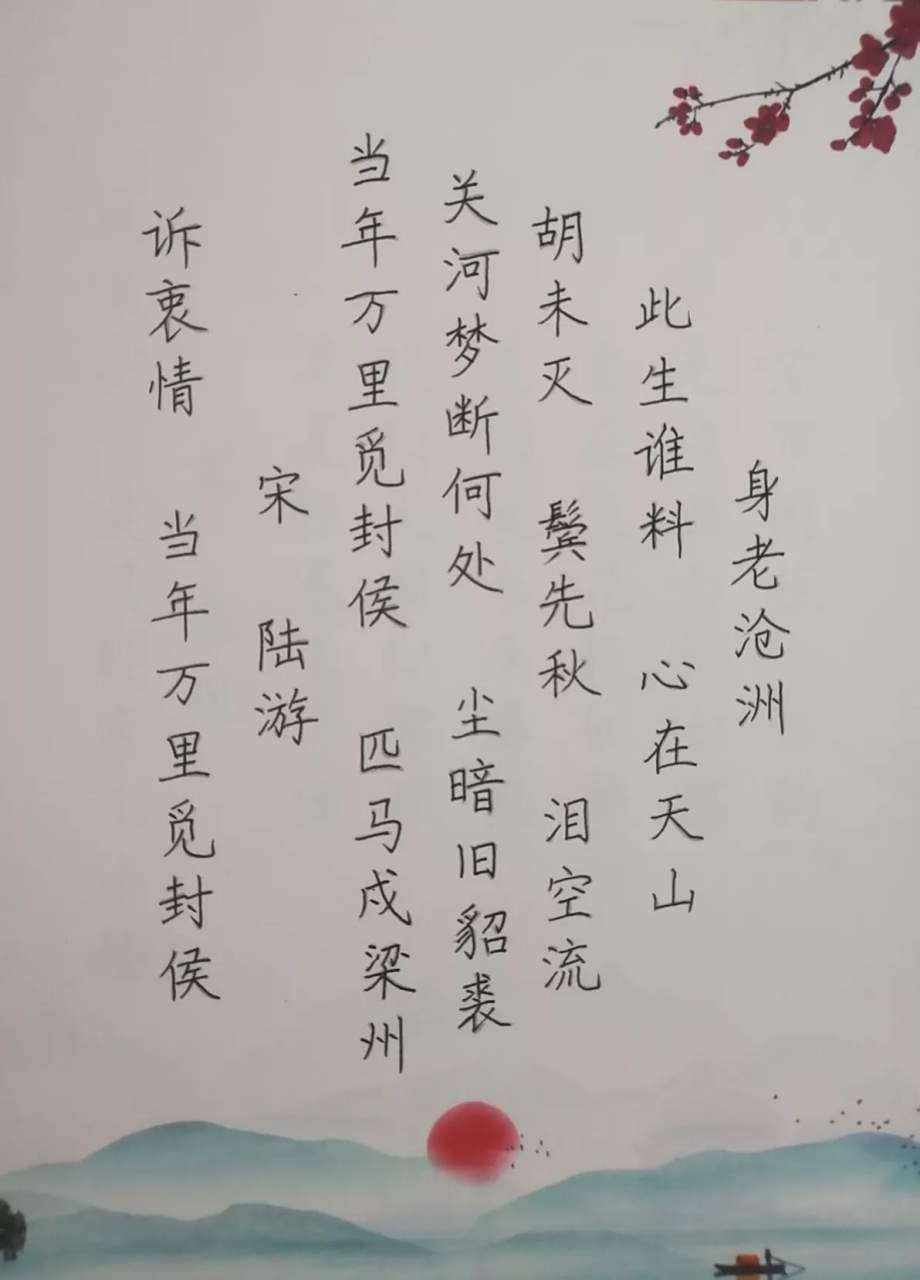 诉衷情 当年万里觅封侯
宋 陆游
当年万里觅封侯 匹马戍梁州
关河梦断何处 尘暗旧貂裘
胡未灭 鬓先秋 泪空流
此生谁料 心在天山
身老沧洲